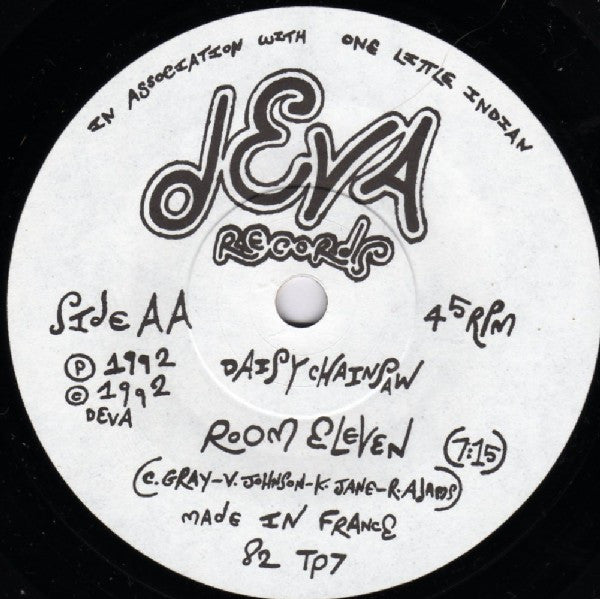 IN ASSOCIATION WITH ONE LITTLE INDIAN
dEVA
RECORDS
SIDE AA
45 RPM
℗ 1992
© 1992
DEVA
DAISY CHAINSAW
ROOM ELEVEN
(7:15)
(C. GRAY-V. JOHNSON-K. JANE-R. ADAMS)
MADE IN FRANCE
82 TP7